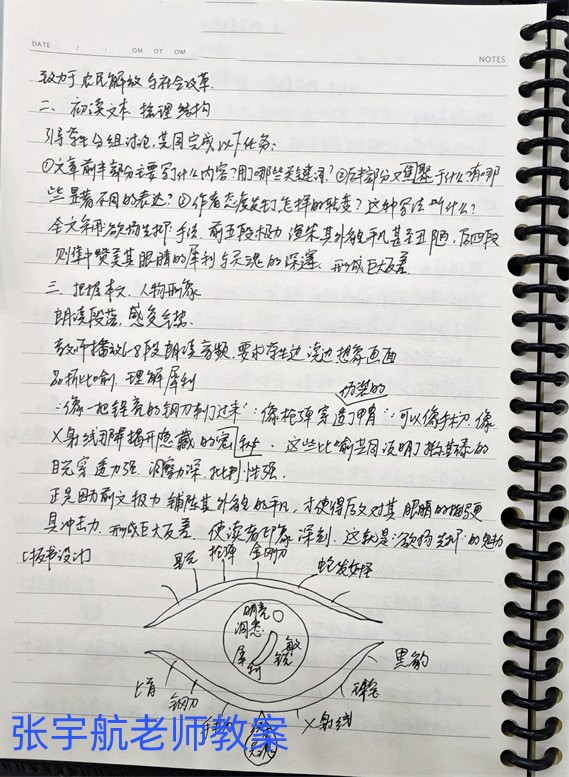 DATE / /
NOTES
致力于农民解放与社会改革.
二、初读文本 梳理结构
引导学生分组讨论,共同完成以下任务:
①文章前半部分主要写什么内容?用了哪些关键词?②后半部分又围聚于什么?有哪
些显著不同的表达?③作者态度发生了怎样的转变?这种写法叫什么?
全文采用欲扬先抑手法,前五段极力渲染其外貌平凡甚至丑陋,后四段
则集中赞美其眼睛的犀利与灵魂的深邃,形成巨大反差.
三、把握本文,人物形象
朗读段落,感受气势
教师播放6-8段朗读音频,要求学生边读边想象画面
品析比喻,理解犀利
伪装的
"像一把锃亮的钢刀刺了过来""像枪弹穿透了甲胄""可以像手术刀、像
X射线那样揭开隐藏的
这些比喻共同说明了托尔斯泰的
目光穿透力强、洞察力深、批判性强.
正是因为前文极力铺陈其外貌的平凡,才使得后文对其眼睛的描写更
具冲击力,形成巨大反差,使读者印象深刻,这就是"欲扬先抑"的魅力
[板书设计]
枪弹 金刚刀
明亮
洞悉
犀利
敏锐
黑豹
钢刀
X射线
张宇航老师教案